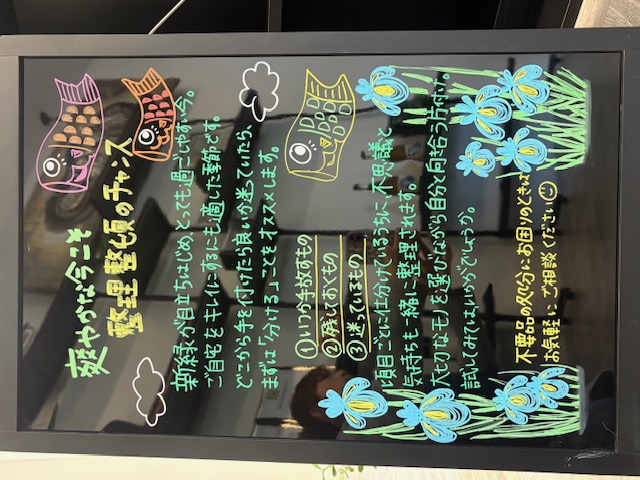 爽やかな今こそ
整理整頓のチャンス
新緑が目立ちはじめ、とっても過ごしやすい今。
ご自宅をキレイにするにも適した季節です。
どこから手を付けたら良いか迷っていたら、
まずは「分ける」ことをオススメします。
①いつか手放すもの
②残しておくもの
③迷っているもの
項目ごとに仕分けているうちに、不思議と
気持ちも一緒に整理されます。
大切なモノを選びながら自分と向き合う片付け。
試してみてはいかがでしょうか。
不要品の処分にお困りのときは
お気軽にご相談ください